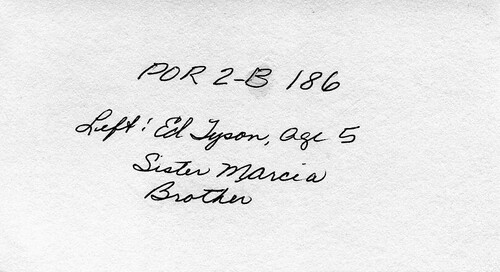 POR 2-B 186
Left: Ed Tyson, age 5
Sister Marcia
Brother